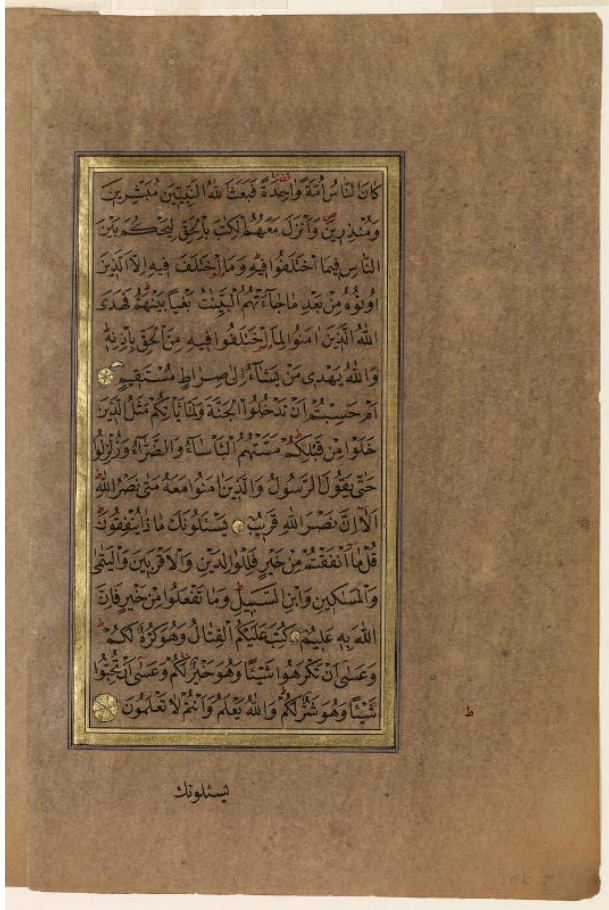 كَانَ النَّاسُ اُمَّةً وَاحِدَةً فَبَعَثَ اللّٰهُ النَّبِيّٖنَ مُبَشِّرِينَ
وَمُنْذِرِينَ وَاَنْزَلَ مَعَهُمُ الْكِتٰبَ بِالْحَقِّ لِيَحْكُمَ بَيْنَ
النَّاسِ فِيمَا اخْتَلَفُوا فِيهِ وَمَا اخْتَلَفَ فِيهِ اِلَّا الَّذِينَ
اُوتُوهُ مِنْ بَعْدِ مَا جَاۤءَتْهُمُ الْبَيِّنٰتُ بَغْيًا بَيْنَهُمْ فَهَدَى
اللّٰهُ الَّذِينَ اٰمَنُوا لِمَا اخْتَلَفُوا فِيهِ مِنَ الْحَقِّ بِاِذْنِهٖ
وَاللّٰهُ يَهْدِى مَنْ يَشَاۤءُ اِلٰى صِرَاطٍ مُسْتَقِيمٍ
اَمْ حَسِبْتُمْ اَنْ تَدْخُلُوا الْجَنَّةَ وَلَمَّا يَاْتِكُمْ مَثَلُ الَّذِينَ
خَلَوْا مِنْ قَبْلِكُمْ مَسَّتْهُمُ الْبَاْسَاۤءُ وَالضَّرَّاۤءُ وَزُلْزِلُوا
حَتّٰى يَقُولَ الرَّسُولُ وَالَّذِينَ اٰمَنُوا مَعَهُ مَتٰى نَصْرُ اللّٰهِ
اَلَاۤ اِنَّ نَصْرَ اللّٰهِ قَرِيبٌ يَسْـَٔلُونَكَ مَاذَا يُنْفِقُونَ
قُلْ مَاۤ اَنْفَقْتُمْ مِنْ خَيْرٍ فَلِلْوَالِدَيْنِ وَالْاَقْرَبِينَ وَالْيَتٰمٰى
وَالْمَسٰكِينِ وَابْنِ السَّبِيلِ وَمَا تَفْعَلُوا مِنْ خَيْرٍ فَاِنَّ
اللّٰهَ بِهٖ عَلِيمٌ كُتِبَ عَلَيْكُمُ الْقِتَالُ وَهُوَ كُرْهٌ لَكُمْ
وَعَسٰۤى اَنْ تَكْرَهُوا شَيْـًٔا وَهُوَ خَيْرٌ لَكُمْ وَعَسٰۤى اَنْ تُحِبُّوا
شَيْـًٔا وَهُوَ شَرٌّ لَكُمْ وَاللّٰهُ يَعْلَمُ وَاَنْتُمْ لَا تَعْلَمُونَ
ط
يسـٔلونك